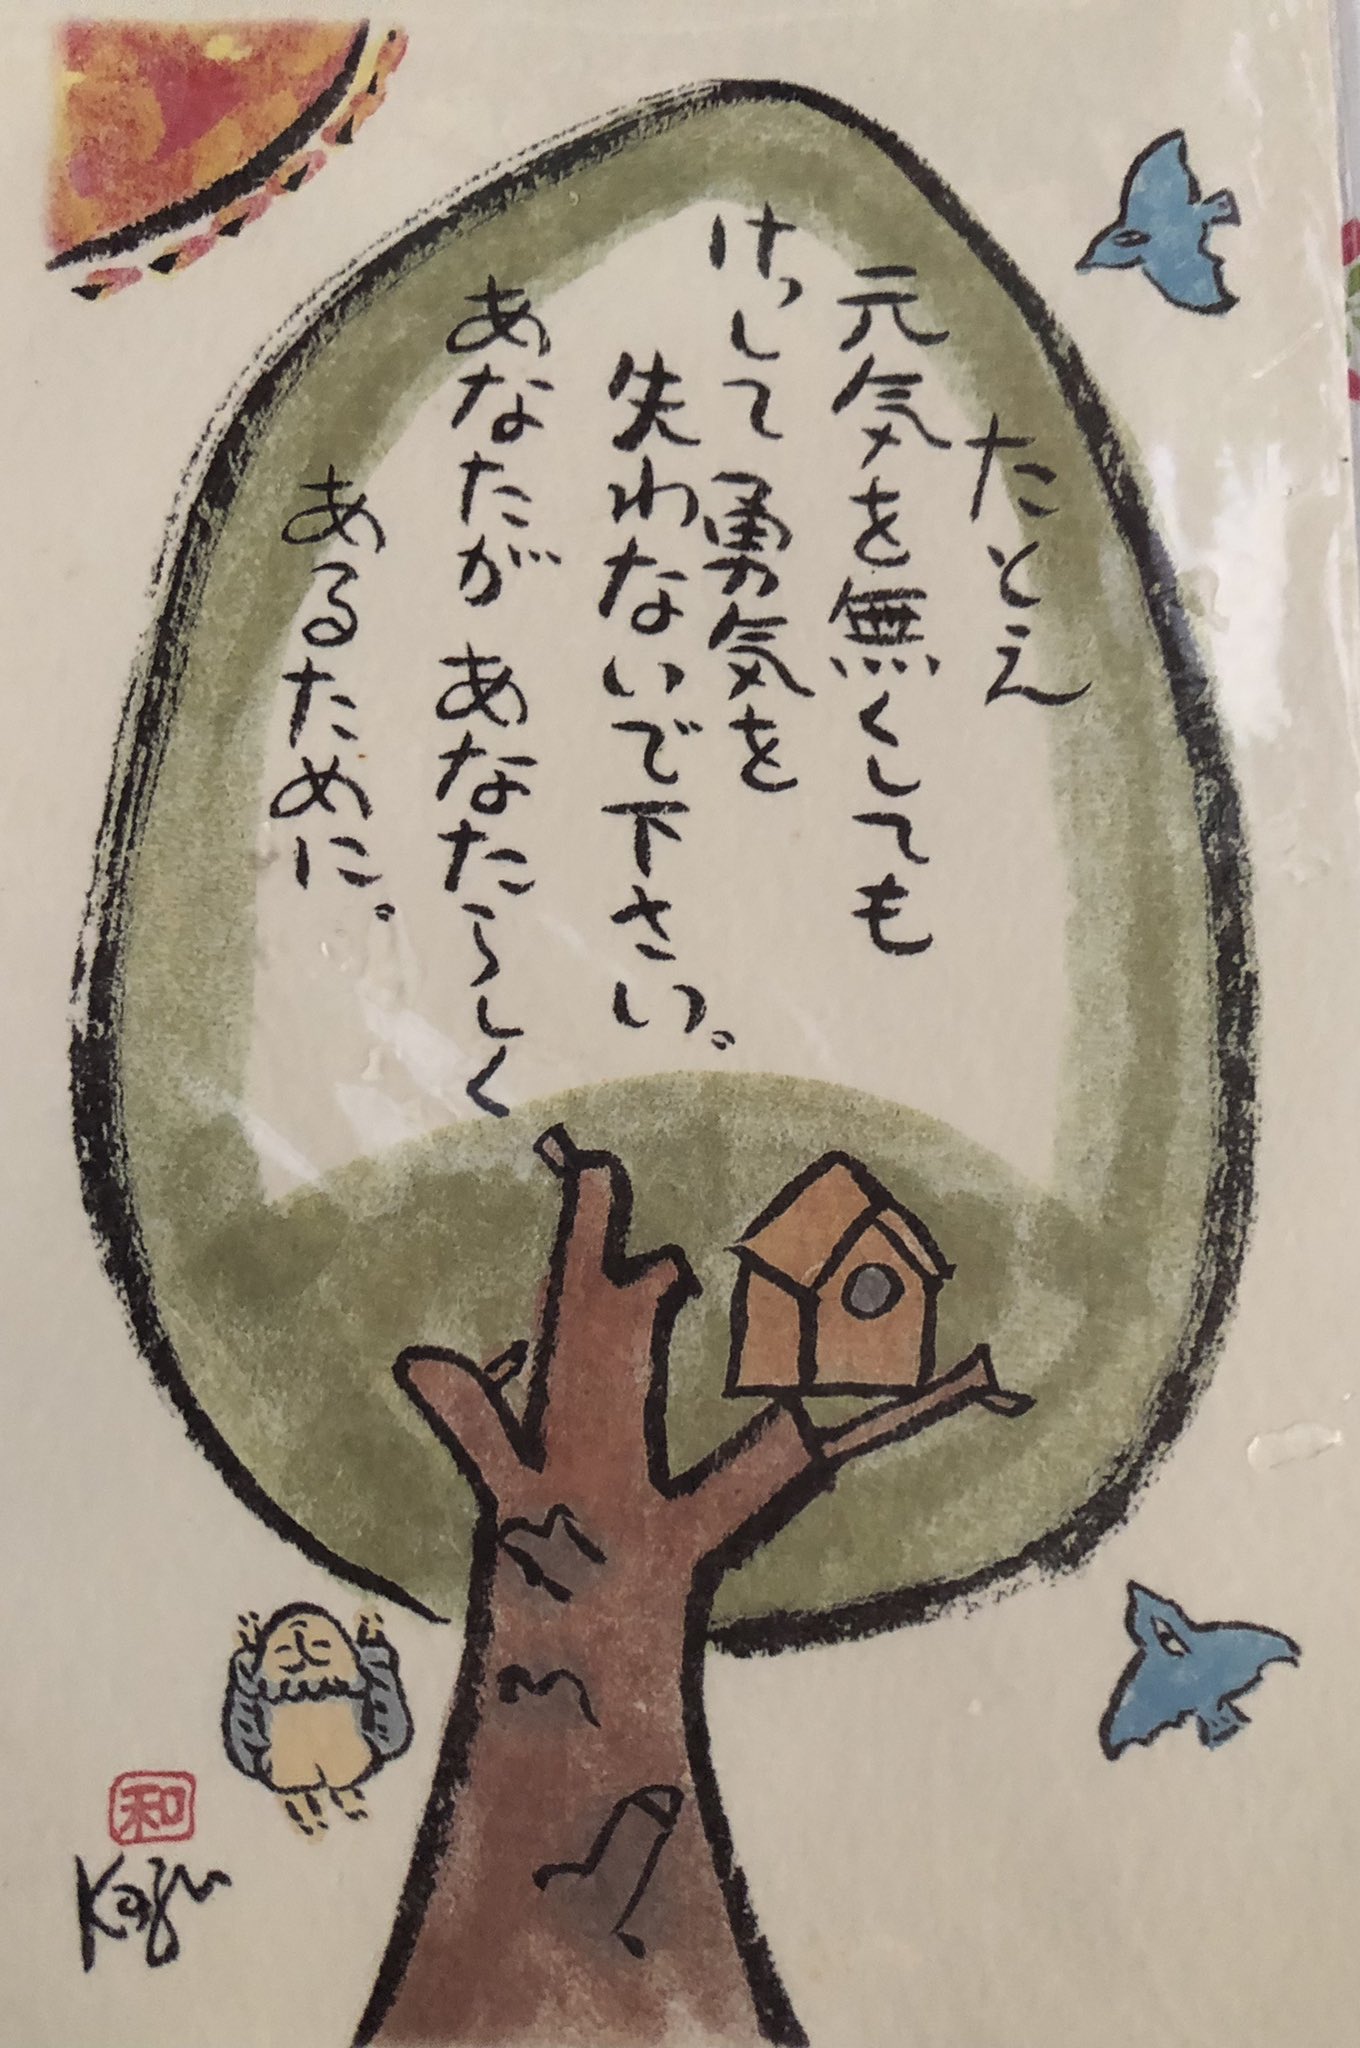 たとえ
元気を無くしても
けっして勇気を
失わないで下さい。
あなたがあなたらしく
あるために。
和
Kazu